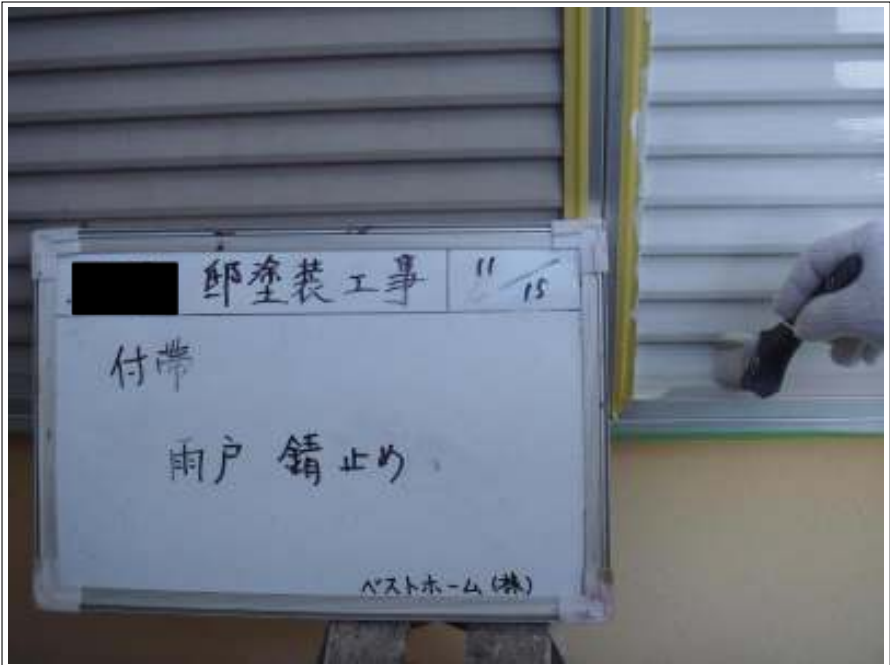 邸塗装工事 11/15
付帯
雨戸 錆止め
ベストホーム(株)